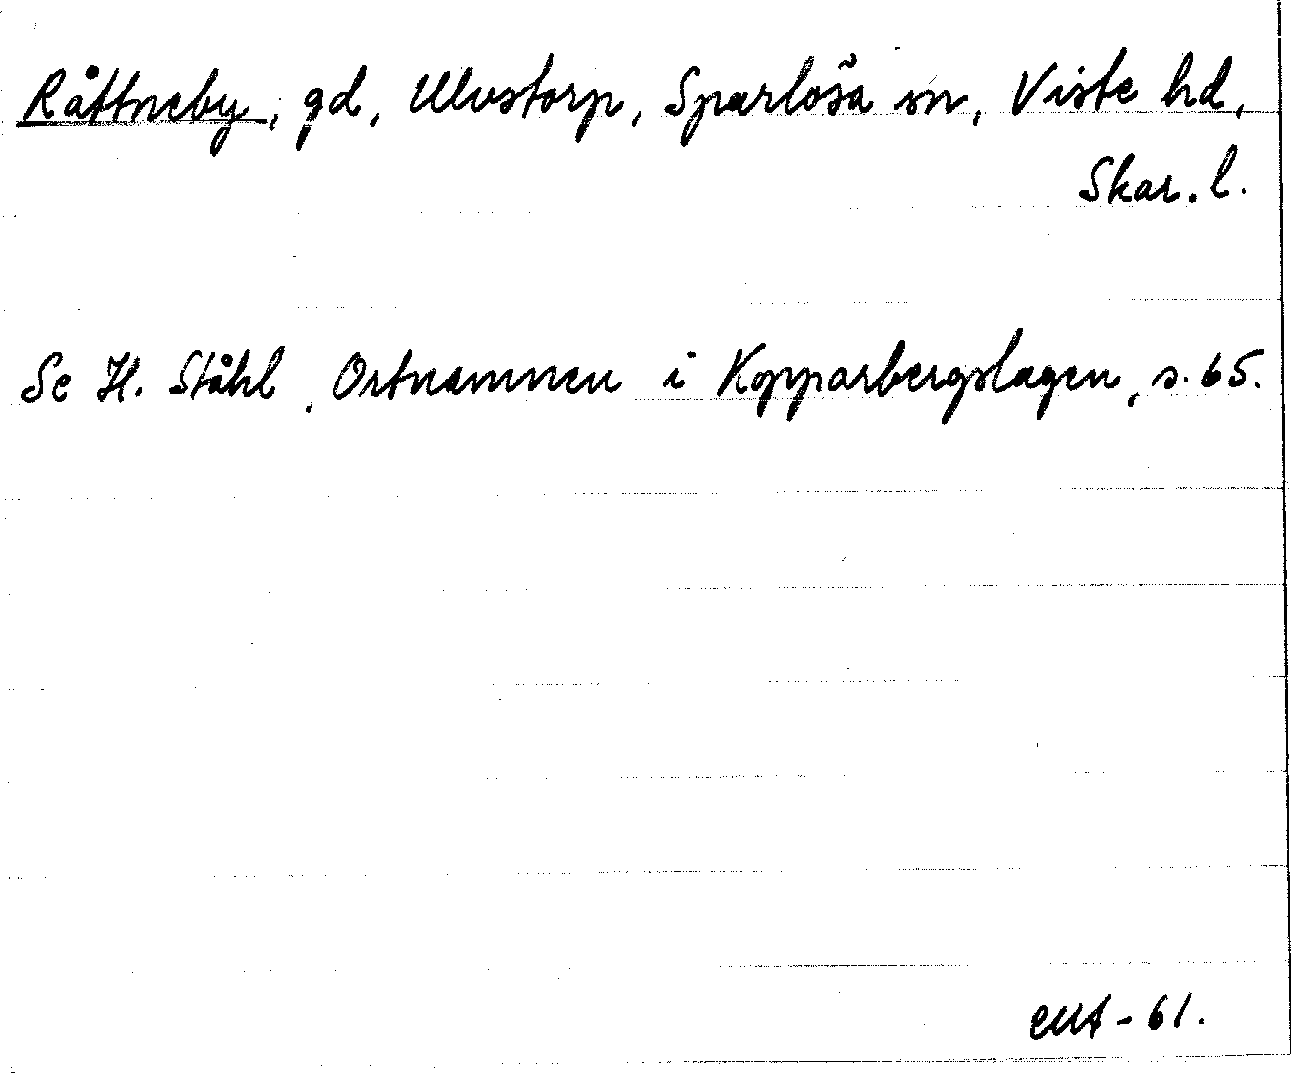 Råttneby, gd, Ulvstorp, Sparlösa sn, Viste hd,
Skar. l.
Se H. Ståhl, Ortnamnen i Kopparbergslagen, s. 65.
- 61.